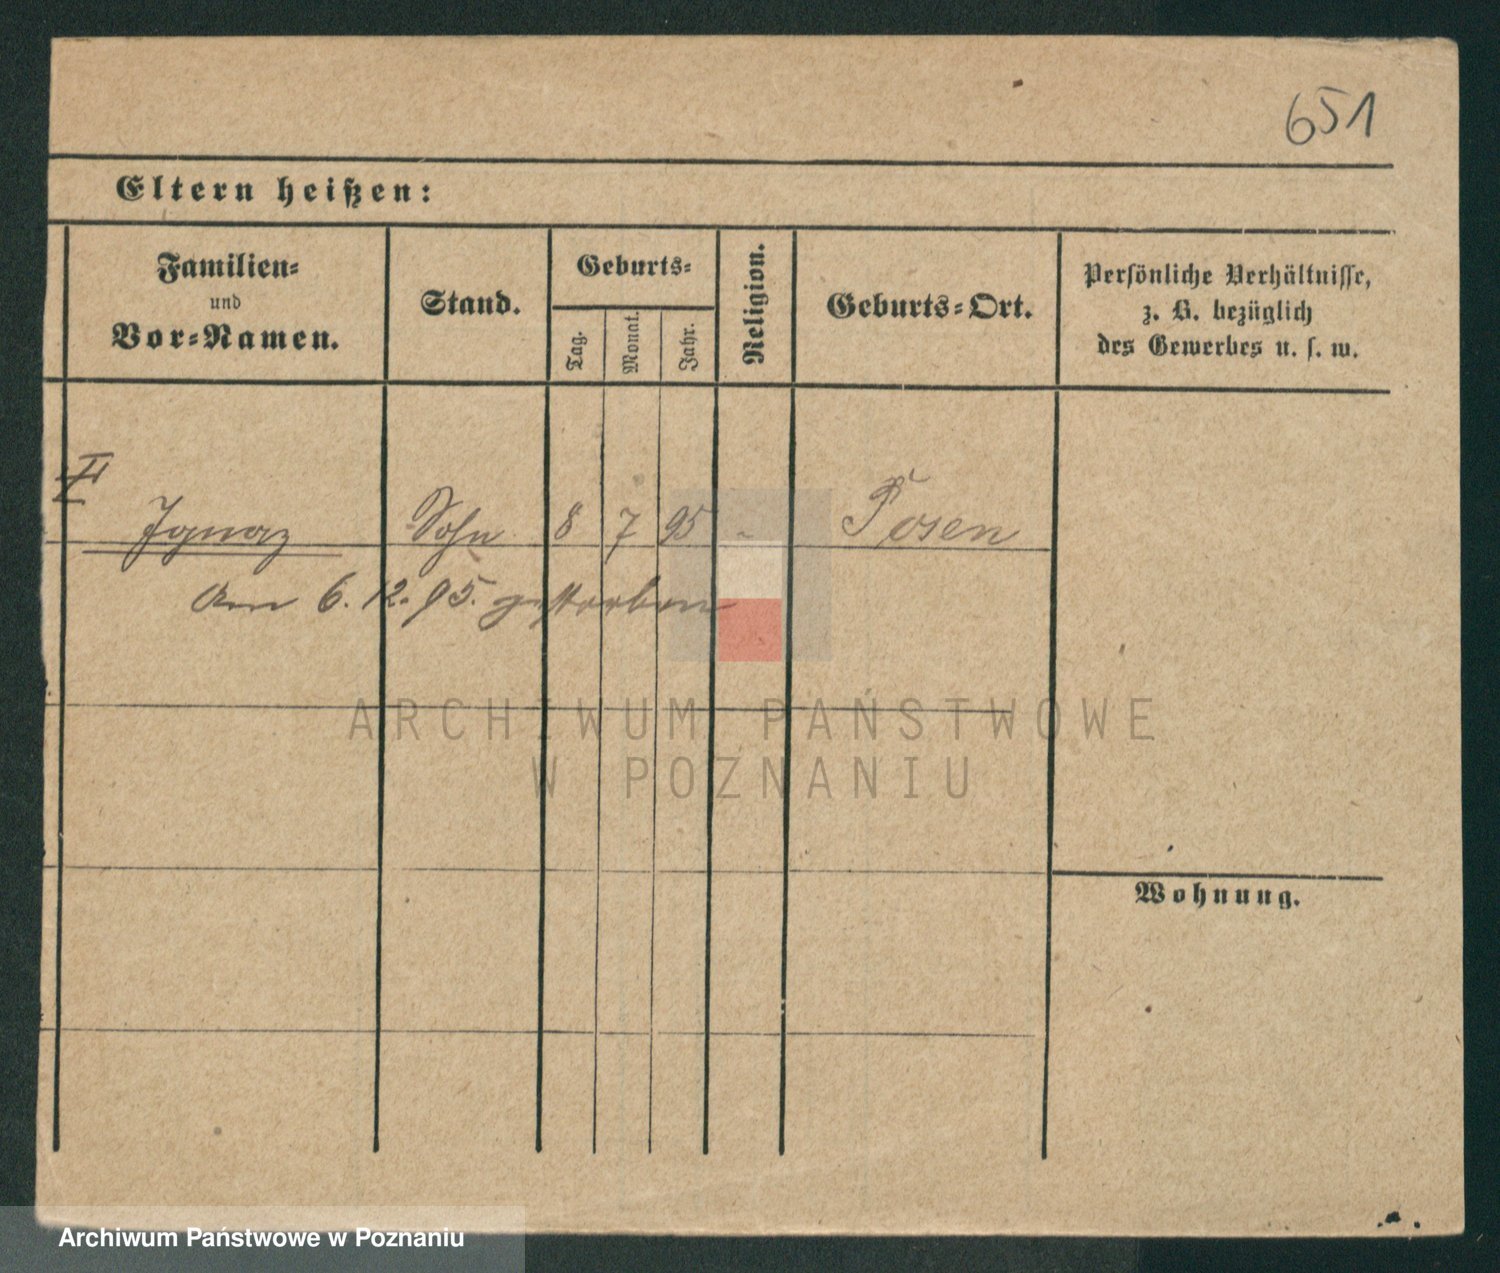 651
Eltern heißen:
Familien=
und
Vor=Namen.
Stand.
Geburts=
Tag.
Monat.
Jahr.
Religion.
Geburts=Ort.
Persönliche Verhältnisse,
z. B. bezüglich
des Gewerbes u. s. w.
II
Ignaz Sohn 8 7 95 - Posen
Am 6. 12. 95. gestorben
ARCHIWUM PAŃSTWOWE
W POZNANIU
Wohnung.
Archiwum Państwowe w Poznaniu